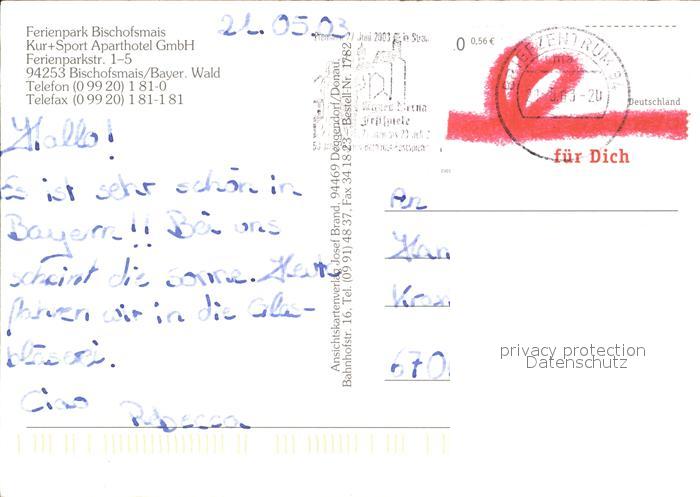 Ferienpark Bischofsmais
Kur+Sport Aparthotel GmbH
Ferienparkstr. 1–5
94253 Bischofsmais/Bayer. Wald
Telefon (0 99 20) 1 81-0
Telefax (0 99 20) 1 81-1 81
21.05.03
Hallo!
Es ist sehr schön in
Bayern!! Bei uns
scheint die Sonne. Heute
fahren wir in die Glas-
bläserei.
Ciao Rebecca
Ansichtskartenverlag Josef Brand, 94469 Deggendorf/Donau,
Bahnhofstr. 16, Tel. (09 91) 48 37, Fax 34 18 23 – Bestell-Nr. 1782
2003
0,56 €
BRIEFZENTRUM 94
Deutschland
für Dich
An
670
privacy protection
Datenschutz